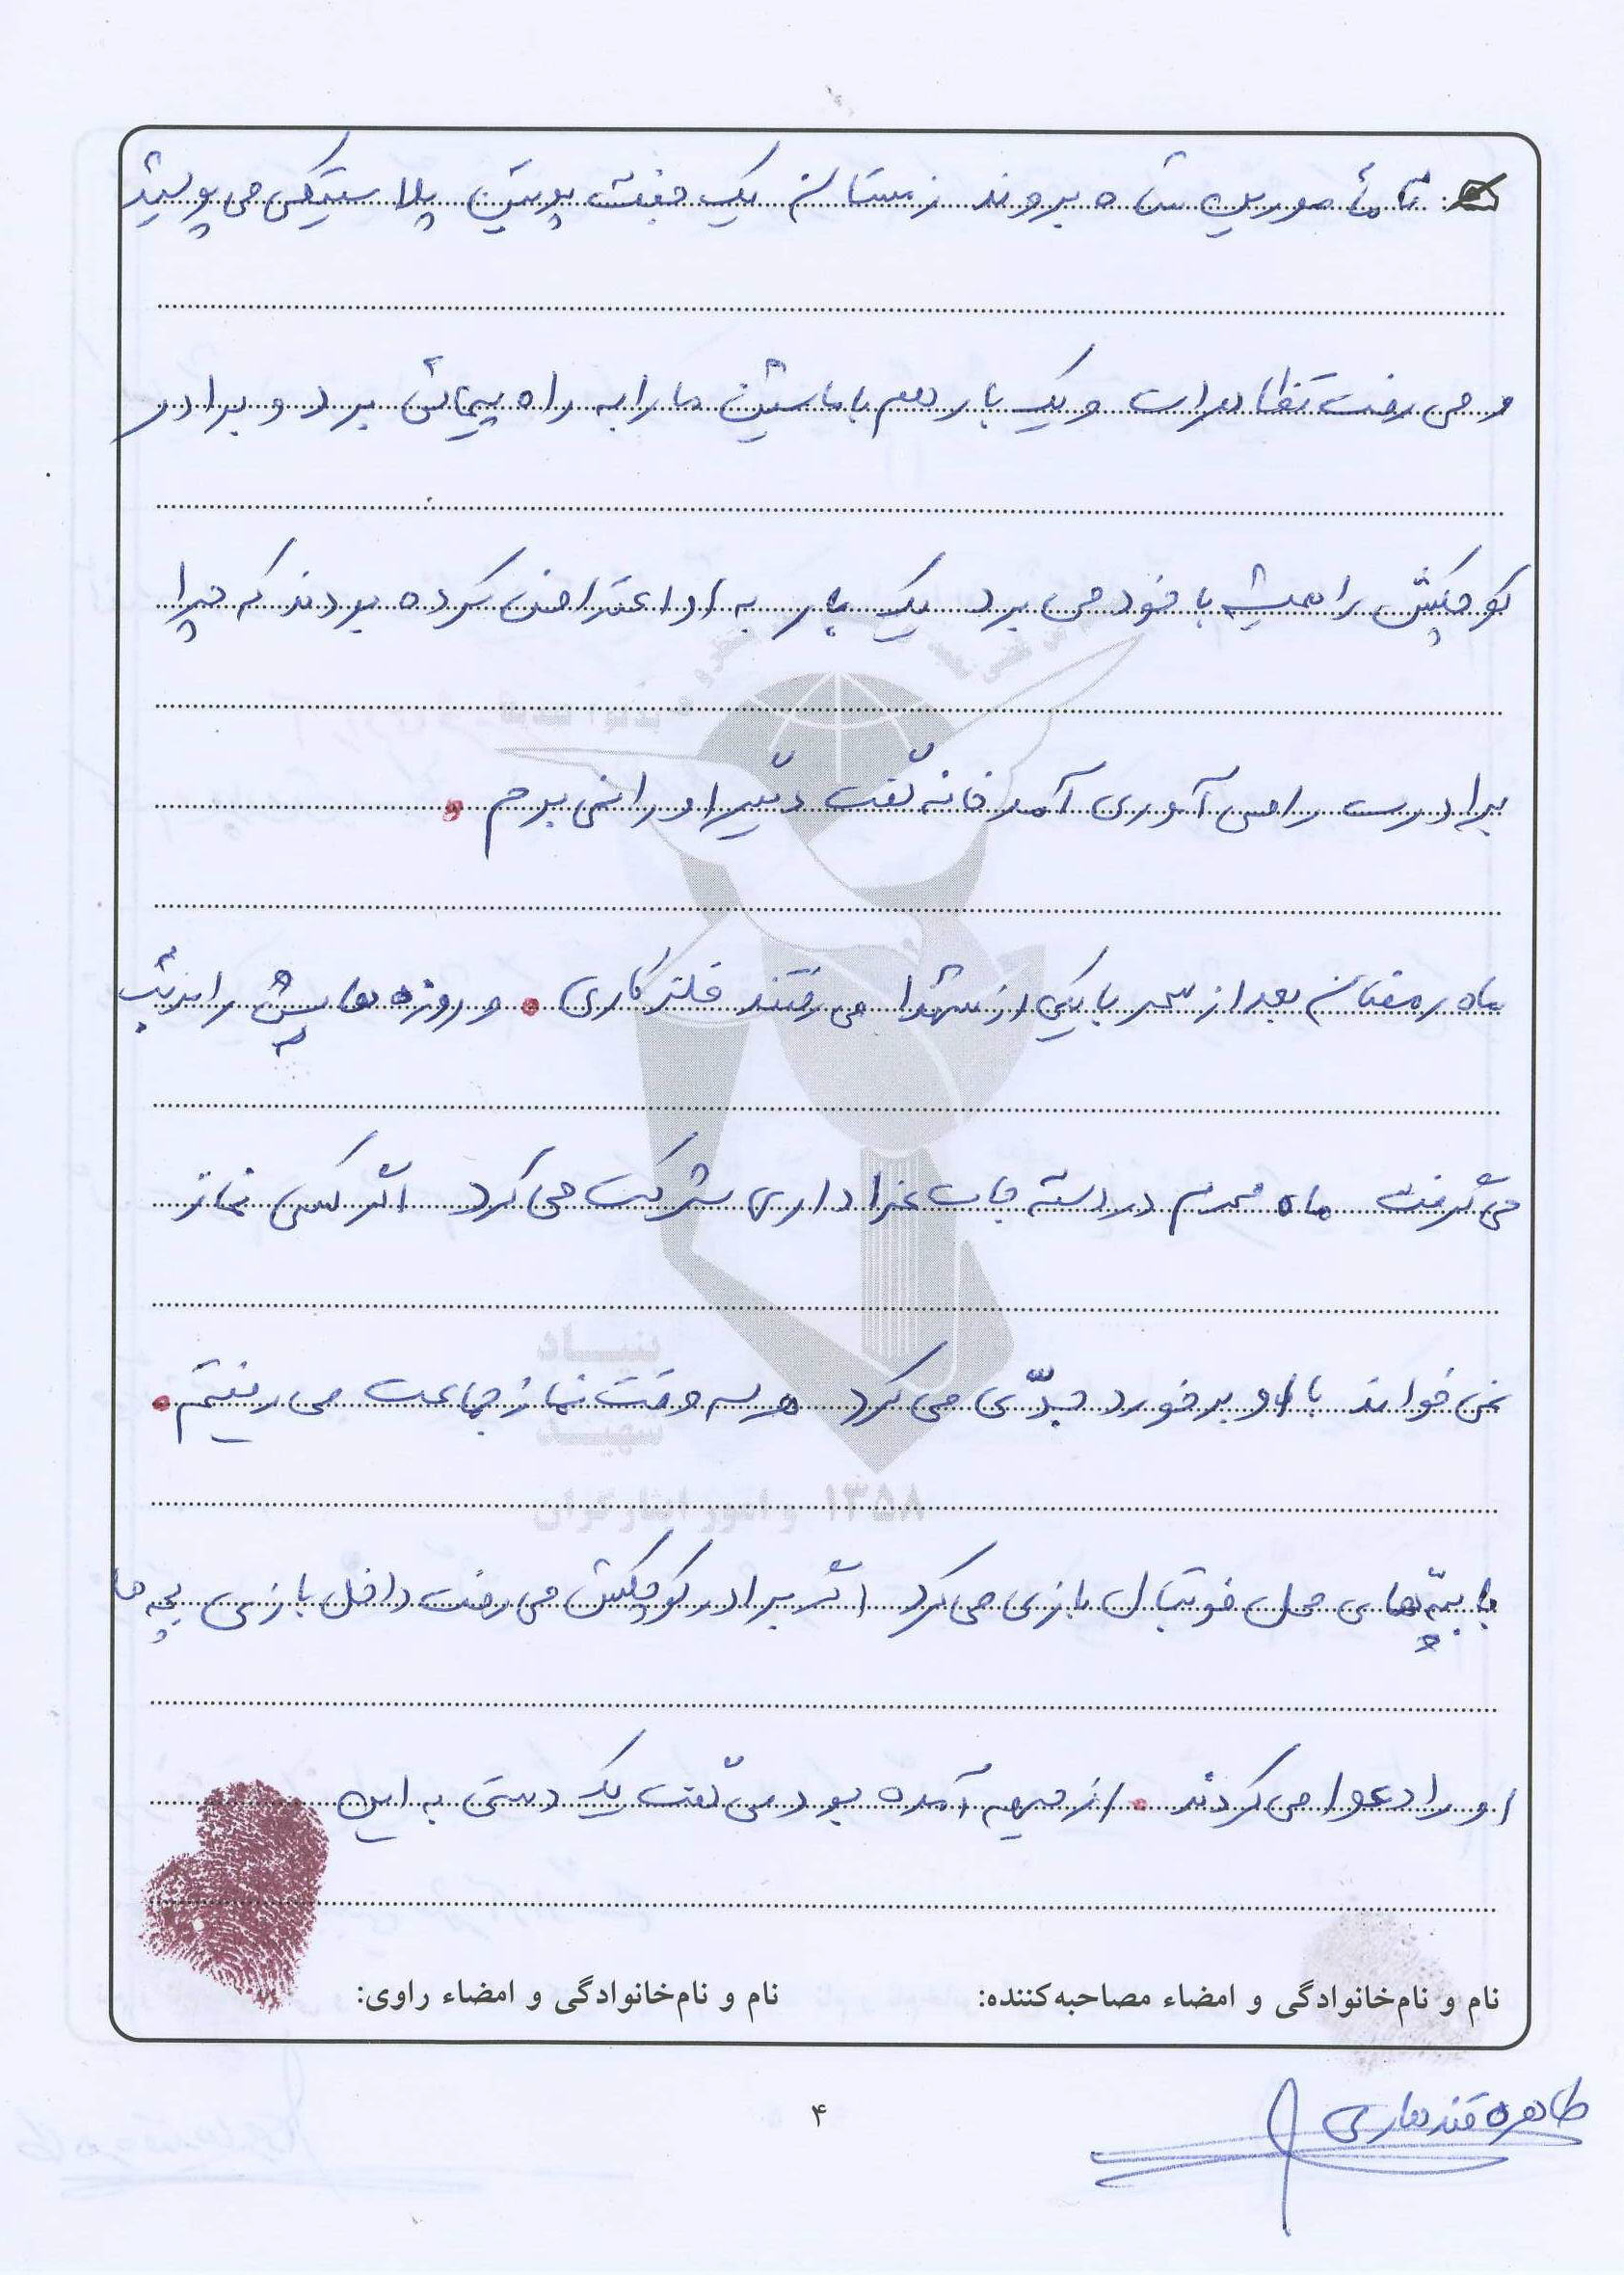 تا مأمورین شاه بروند زمستان یک جفت پوتین پلاستیکی می پوشید
و می رفت تظاهرات و یک بار هم با ماشین ما را به راه پیمائی برد و برادر
کوچکش را همیشه با خود می برد یک بار به او اعتراض کرده بودند که چرا
برادرت را می آوری آمد خانه گفت دیگر او را نمی برم .
ماه رمضان بعد از سحر با یکی از شهدا می رفتند فلزکاری . و روزه هایش را مرتب
می گرفت ماه محرم در دسته جات عزاداری شرکت می کرد اگر کسی نماز
نمی خواند با او برخورد جدّی می کرد هر سه وقت نماز جماعت می رفتیم .
با بچّه های محل فوتبال بازی می کرد اگر برادر کوچکش می رفت داخل بازی بچه ها
او را دعوا می کردند . از جبهه آمده بود می گفت یک دستی به این
بنیاد
شهید
و امور ایثارگران ۱۳۵۸
نام و نام‌خانوادگی و امضاء مصاحبه‌کننده:
نام و نام‌خانوادگی و امضاء راوی:
طاهره قندهاری
۴